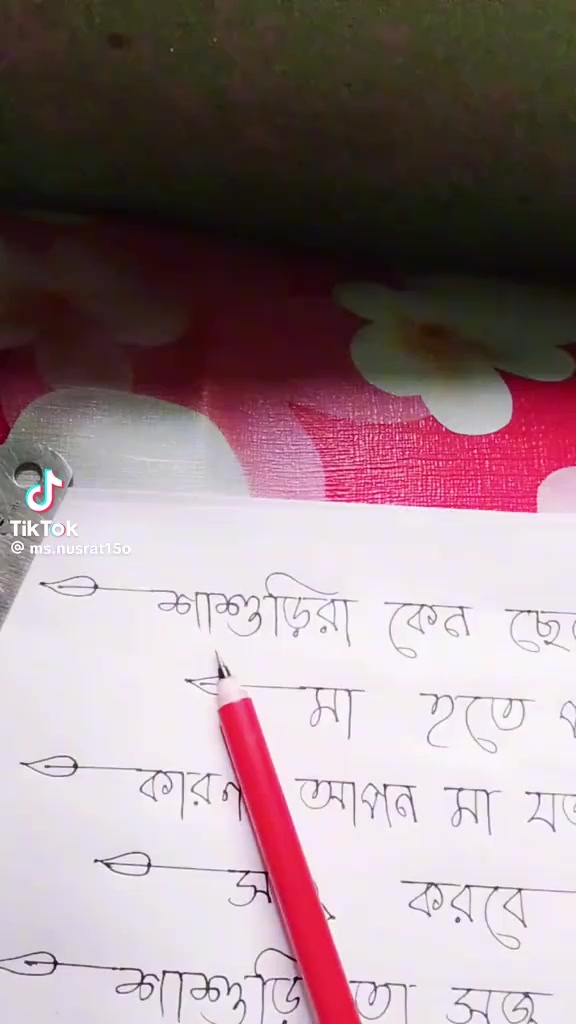 TikTok
@ms.nusrat15o
শাশুড়িরা কেন
মা হতে
কারণ আপন মা
করবে
শাশুড়ি তা